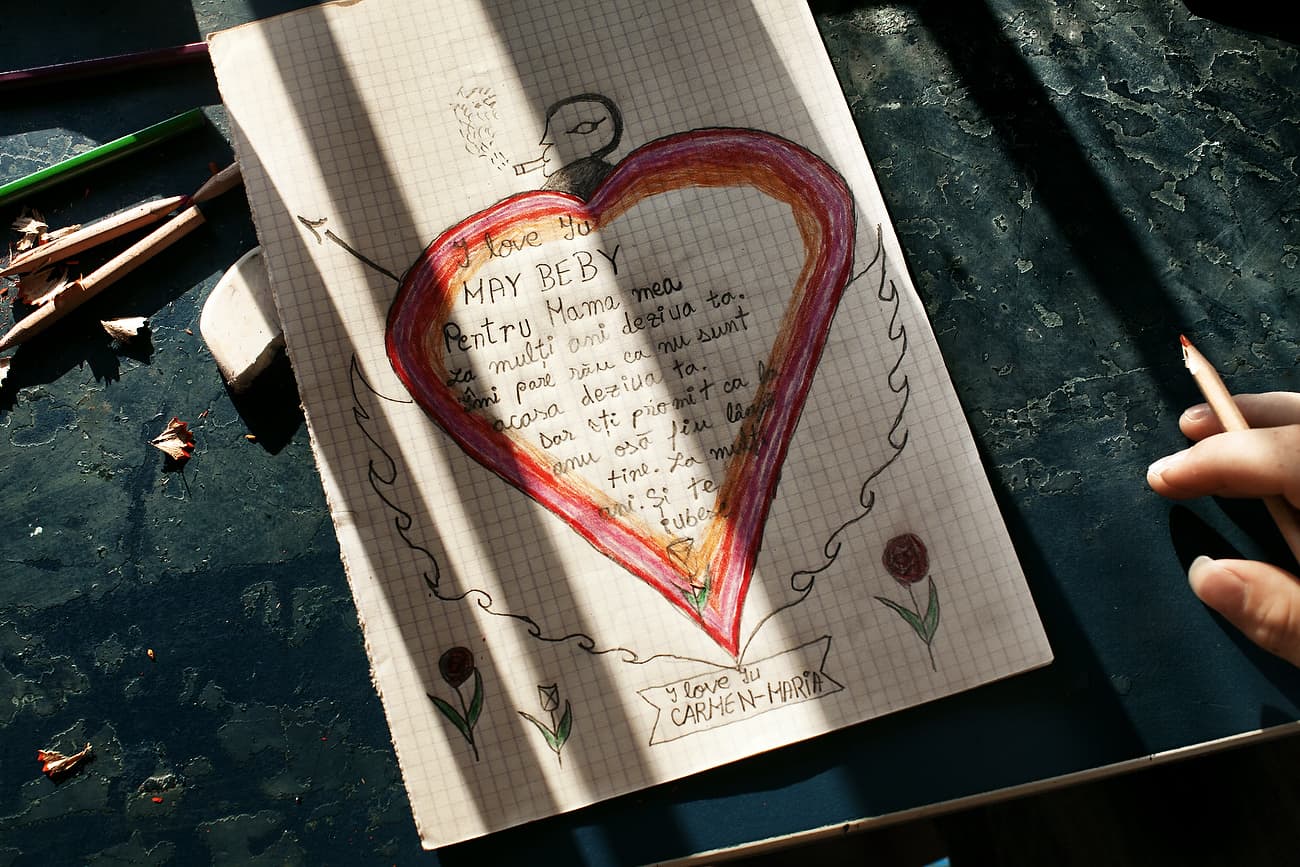 I love Yu
MAY BEBY
Pentru Mama mea
La mulți ani deziua ta.
îmi pare rău ca nu sunt
acasa deziua ta.
Dar ști promit ca la
anu osă fiu lângă
tine. La mulți
ani. Și te
iubesc
I love Yu
CARMEN-MARIA